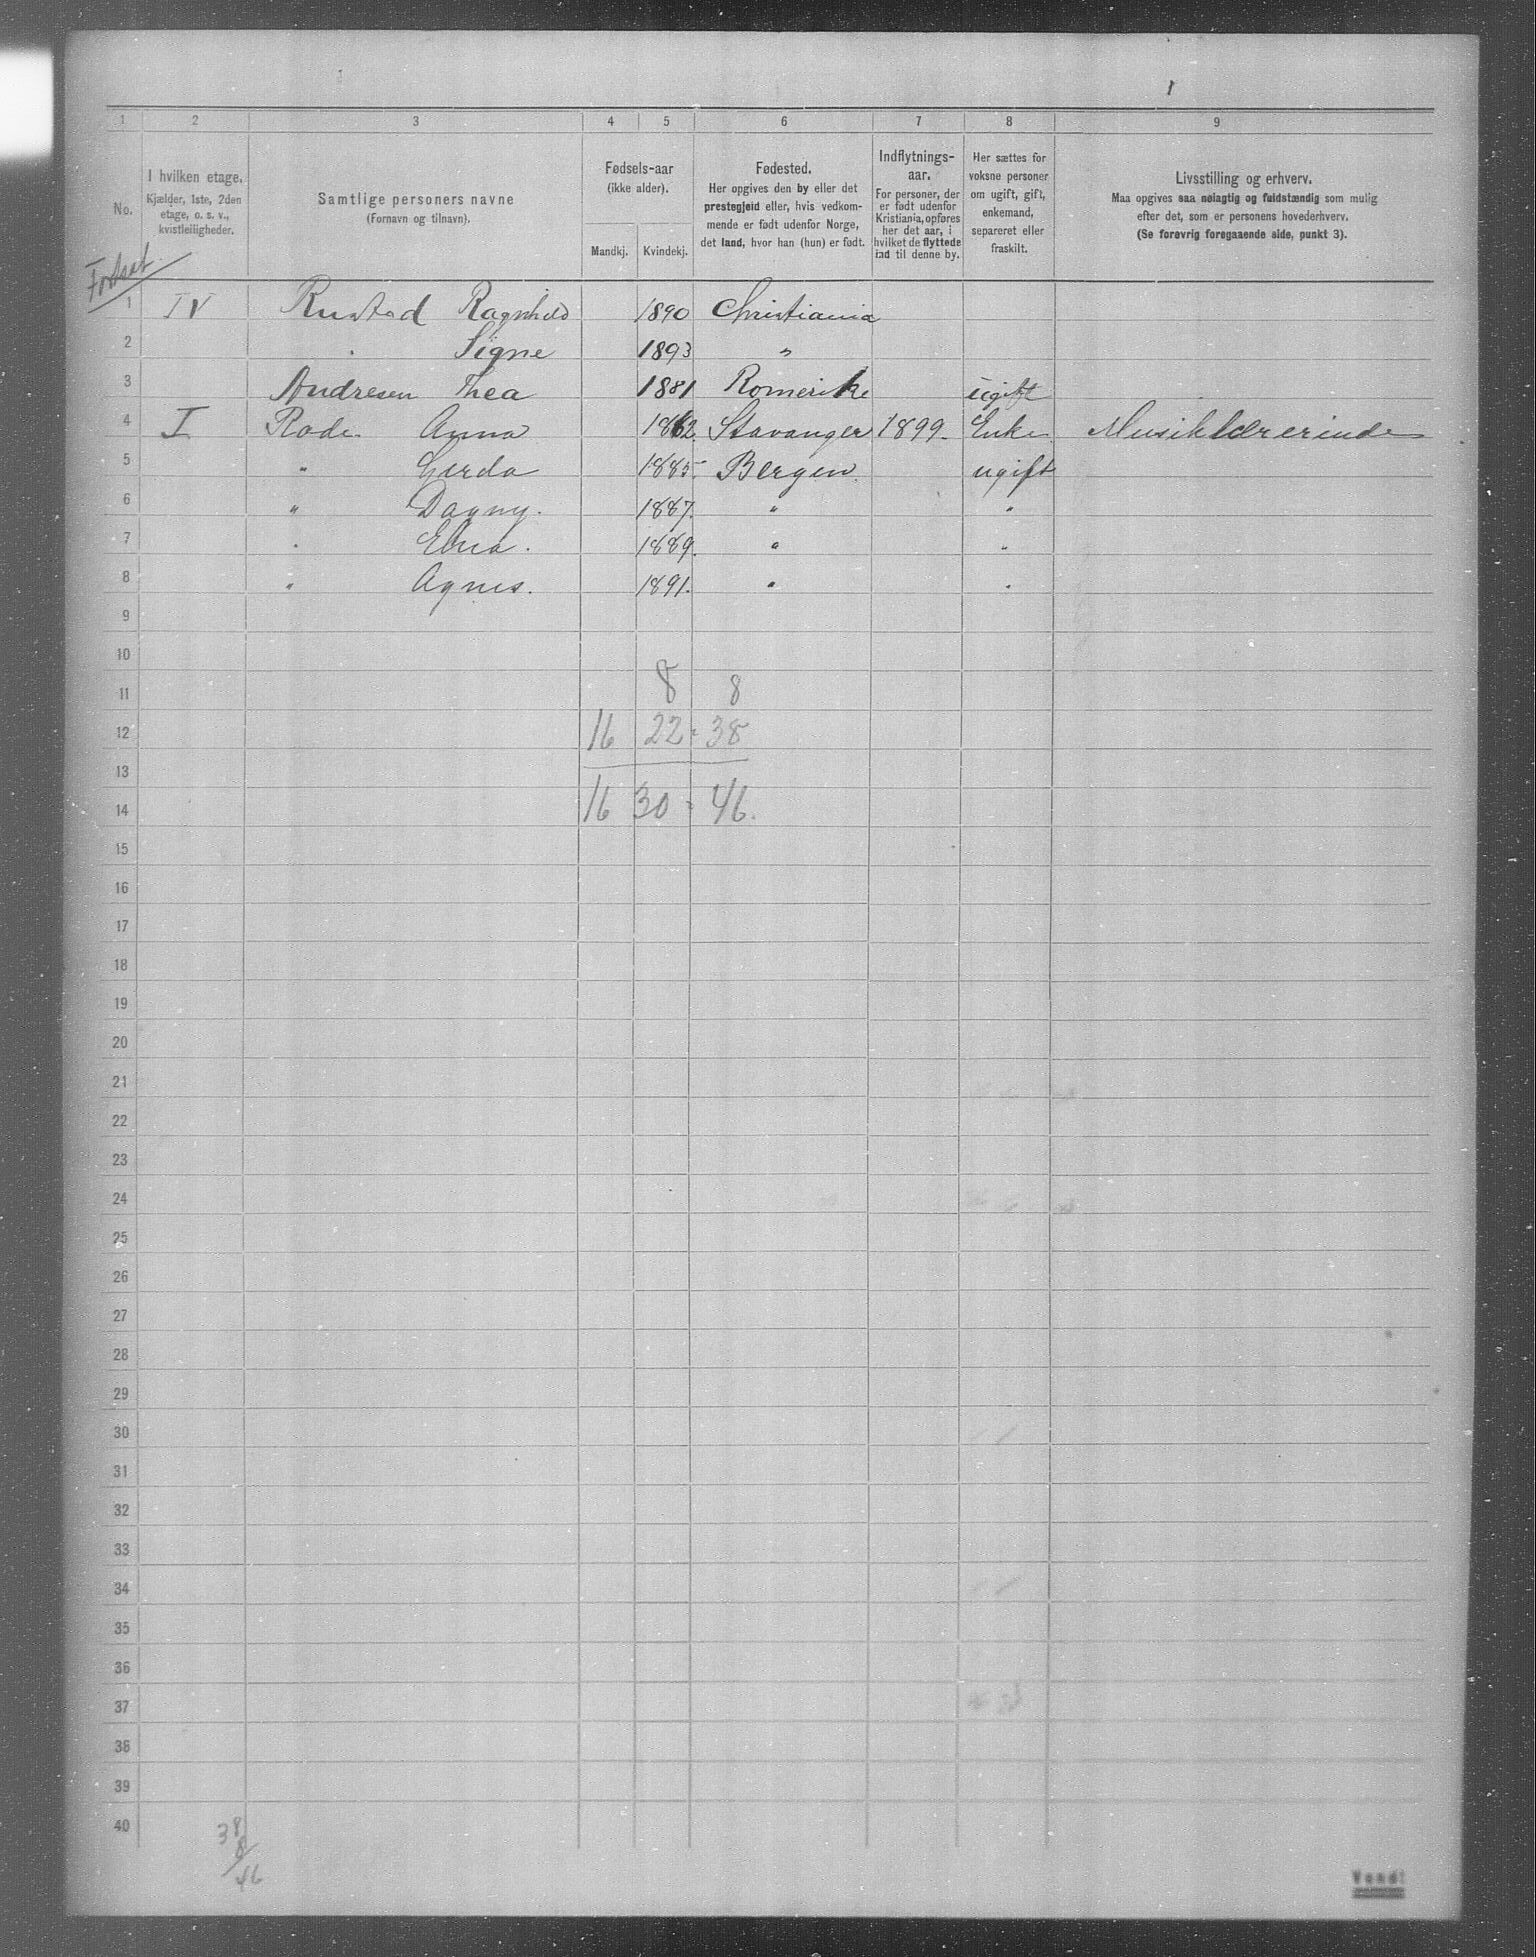 1 2 3 4 5 6 7 8 9
No.
I hvilken etage.
Kjælder, 1ste, 2den
etage, o. s. v.,
kvistleiligheder.
Samtlige personers navne
(Fornavn og tilnavn).
Fødsels-aar
(ikke alder).
Mandkj. Kvindekj.
Fødested.
Her opgives den by eller det
prestegjeld eller, hvis vedkom-
mende er født udenfor Norge,
det land, hvor han (hun) er født.
Indflytnings-
aar.
For personer, der
er født udenfor
Kristiania, opføres
her det aar, i
hvilket de flyttede
ind til denne by.
Her sættes for
voksne personer
om ugift, gift,
enkemand,
separeret eller
fraskilt.
Livsstilling og erhverv.
Maa opgives saa nølagtig og fuldstændig som mulig
efter det, som er personens hovederhverv.
(Se forøvrig foregaaende side, punkt 3).
Fortsat.
1 IV Rustad Ragnhild 1890 Christiania
2 " Signe 1893 "
3 Andresen Thea 1881 Romerike ugift
4 I Rode Anna 1862. Stavanger 1899. Enke Musiklærerinde
5 " Gerda 1885. Bergen. ugift
6 " Dagny. 1887. " "
7 " Edna. 1889. " "
8 " Agnes. 1891. " "
9
10
11 8 8
12 16 22 = 38
13
14 16 30 = 46.
15
16
17
18
19
20
21
22
23
24
25
26
27
28
29
30
31
32
33
34
35
36
37
38
39
40
38
8
46
Vend!